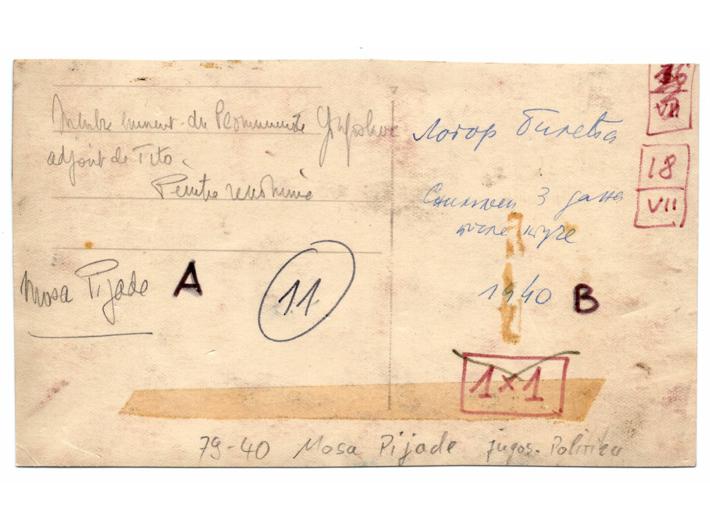 Membre eminent du P Communiste Yougoslave
adjoint de Tito.
Peintre renommé
Mosa Pijade
A
11
Логор Билећа
3 дана
после
1940
B
1x1
16
VII
18
VII
79-40 Mosa Pijade jugos. Politiker